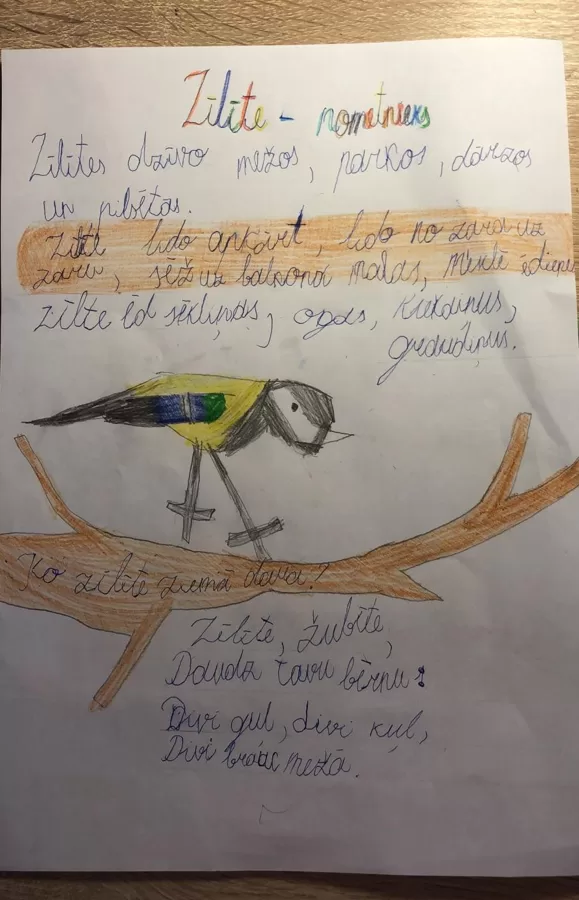 Zīlīte - nometnieks
Zīlītes dzīvo mežos, parkos, dārzos
un pilsētās.
Zīlīte lido apkārt, lido no zara uz
zaru, sēž uz balkona malas, meklē ēdienu
zīlīte ēd sēkliņas, ogas, kukaiņus,
graudiņus.
Ko zīlīte ziemā dara?
Zīlīte, žubīte,
Daudz tavu bērnu:
Divi gul, divi kuļ,
Divi brauc mežā.